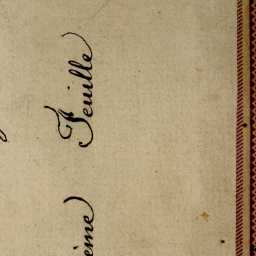 Feuille
ième)